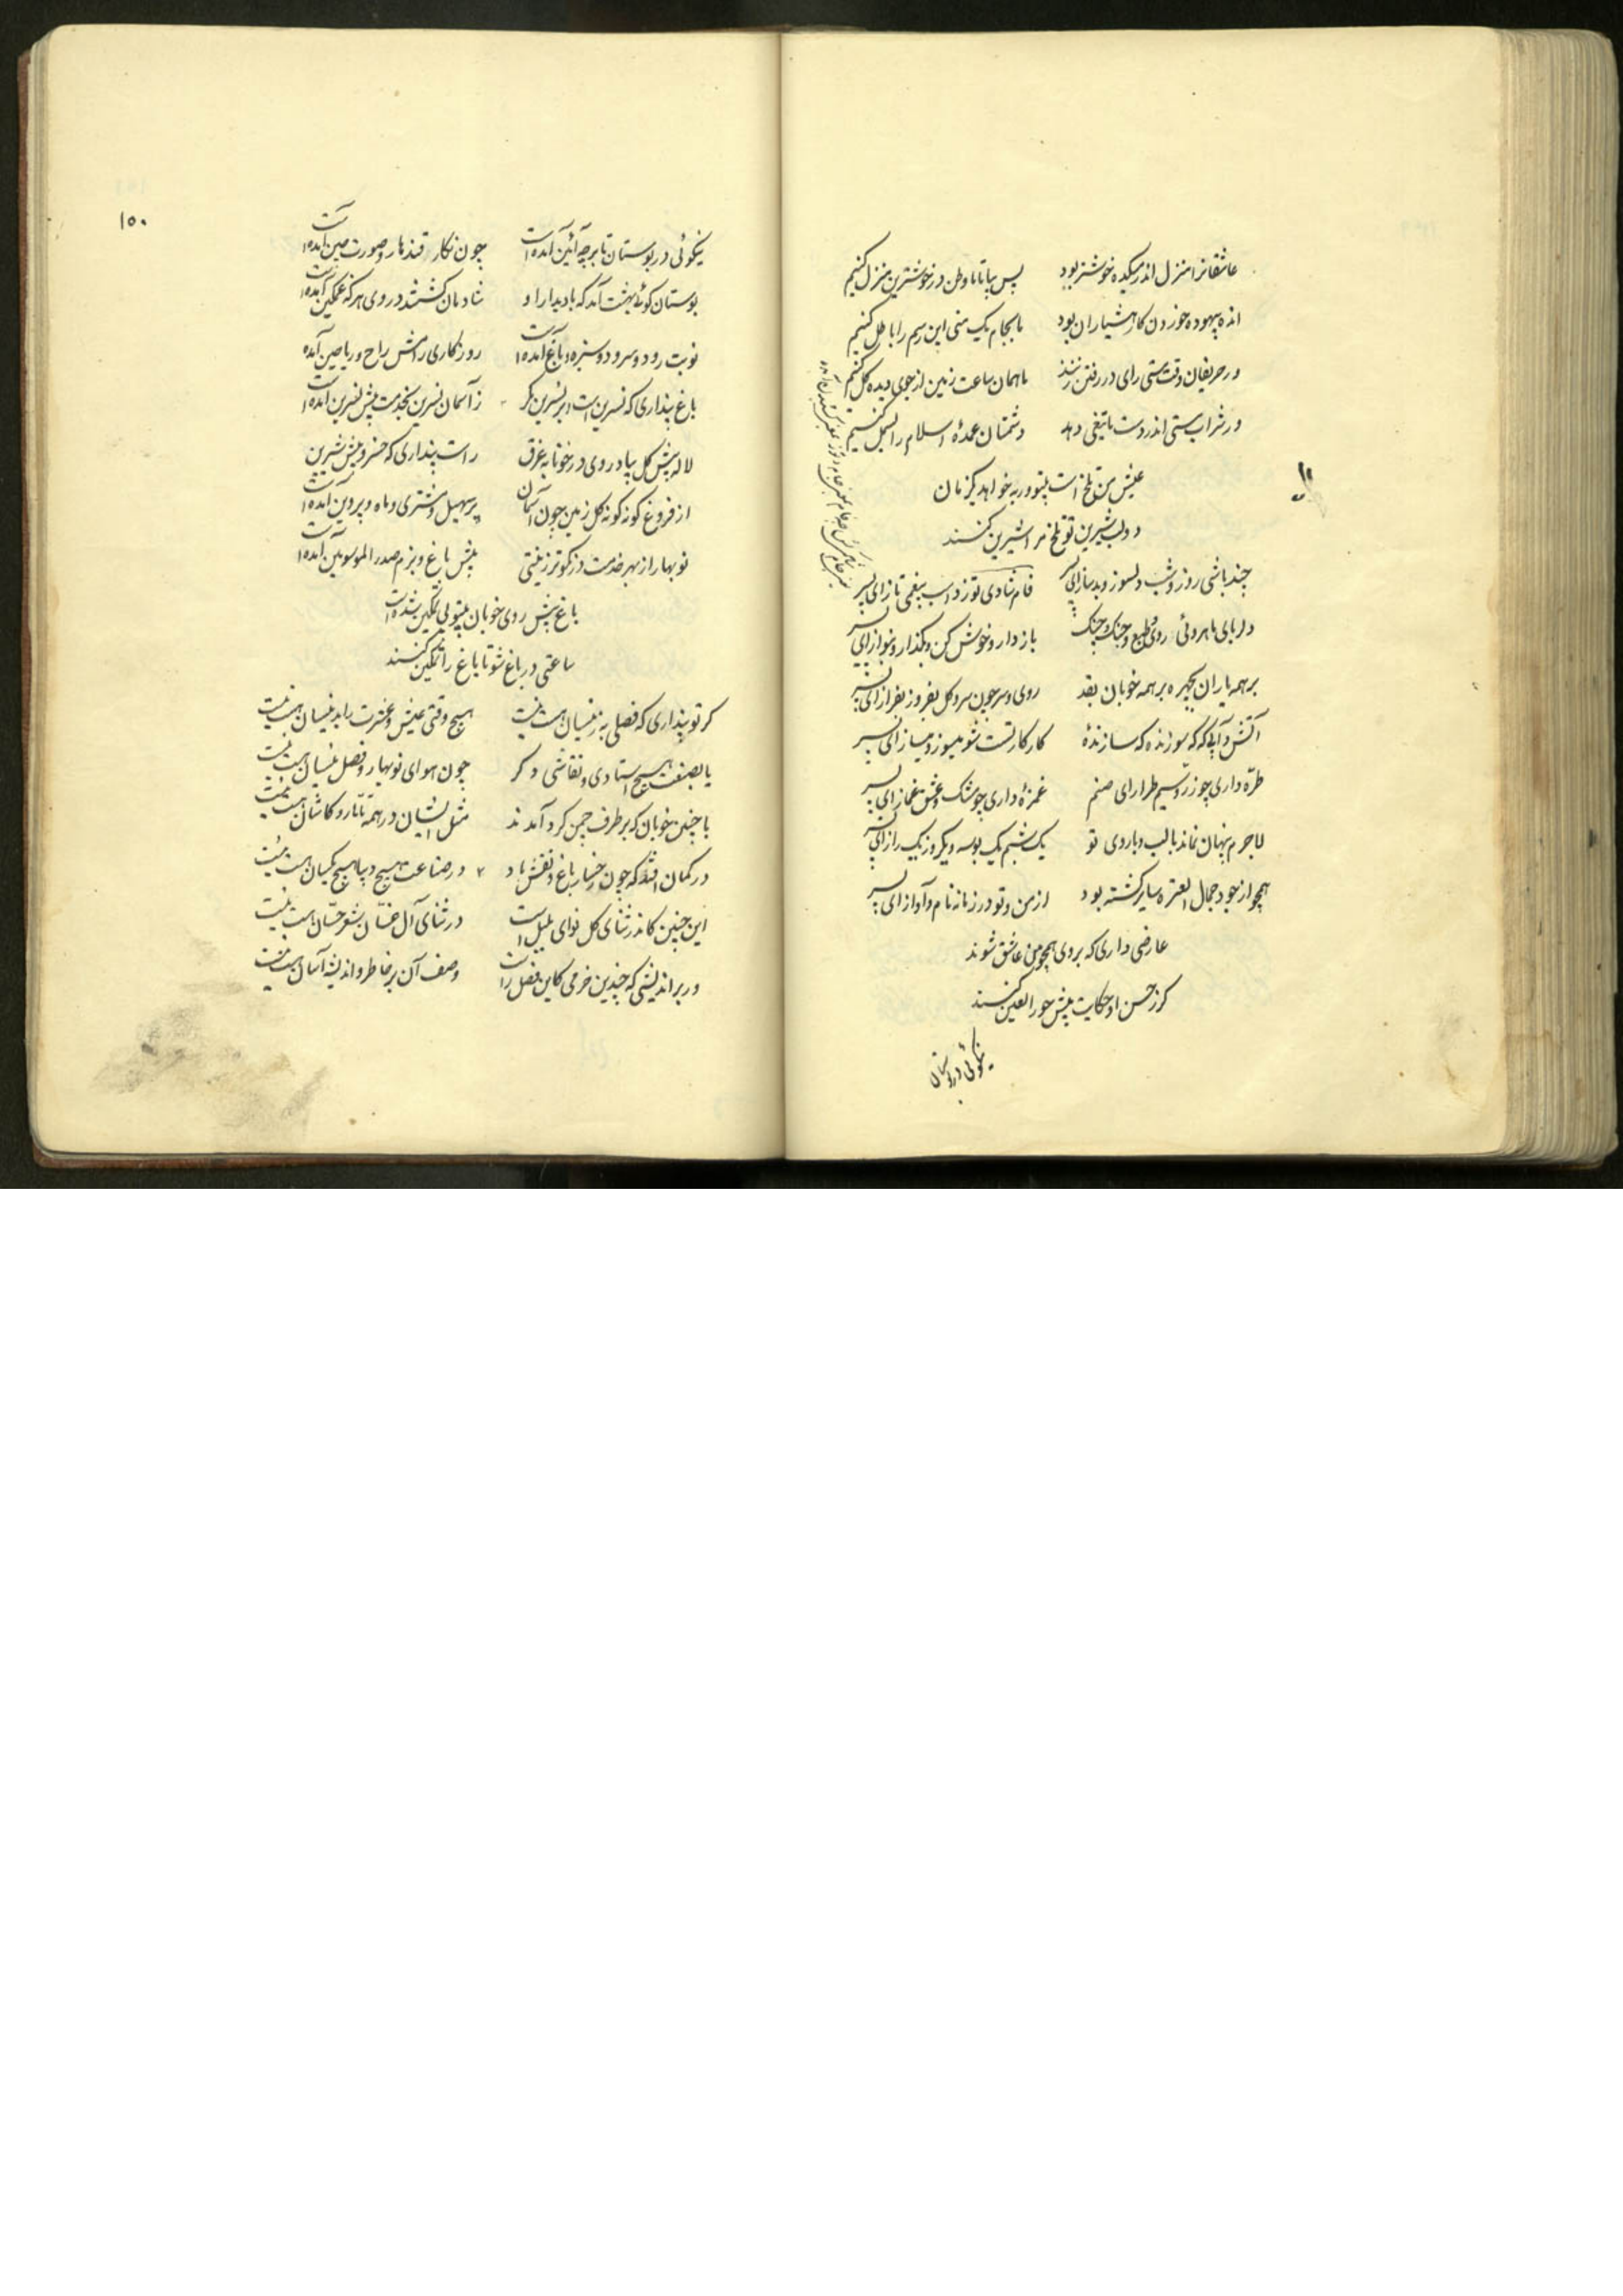 عاشقانرا منزل اندر میکده خوشتر بود پس بیا تا ما وطن در خوشترین منزل کنیم
انده بیهوده خوردن کار هشیاران بود ما بجام یک منی این رسم را باطل کنیم
ور حریفان وقت مستی رای در رفتن زنند ما همان ساعت زمین از جوی دیده گل کنیم
ور شراب مستی اندر دست ما تیغی دهد دشمنان عمدهٔ اسلام را بسمل کنیم
عیش من تلخ است بیتو ور به خواهد یکزمان
دو لب شیرین تو تلخ مرا شیرین کنند
چند باشی روز و شب دلسوز و بدساز ای پسر
فام شادی تو ز اسب بیغمی تاز ای پسر
دلربای ماهروئی روی و طبع و جنگ و چنگ باز دار و خوش کن و بگذار و بنواز ای پسر
بر همه یاران بچهره بر همه خوبان بقد روی و سر چون سرو و گل بفروز بفراز ای پسر
آتش و آبی که گه سوزنده گه سازندهٔ کار کار تست شو میسوز و میساز ای پسر
طرّه داری چو زر و سیم طرار ای صنم غمزهٔ داری چو مشک و عشق غماز ای پسر
لاجرم پنهان نماند با لب و با روی تو یک شبم یک بوسه و یکروز یک راز ای پسر
همچو از جود جمال العتره سایر گشته بود از من و تو در زمانه نام و آواز ای پسر
عارضی داری که بر وی همچو من عاشق شوند
کز حسن او حکایت پیش حور العین کنند
نیکوئی در بوستان
۱۵۰
نیکوئی در بوستان تا بر چه آئین آمده است چون نگار قندهار و صورت چین آمده است
بوستان گوئی بهشت آمد که با دیدار او شادمان گشتند در وی هر که غمگین آمده است
نوبت رود و سرود و سبزه و باغ آمده است روزگار رامش راح و ریاحین آمده
باغ پنداری که نسرین است و بر نسرین مگر ز آسمان نسرین بخدمت پیش نسرین آمده است
لاله پیش گل پیاده روی در خونابه غرق راست پنداری که خسرو پیش شیرین
از فروغ گونه گونه گل زمین چون آسمان پر سهیل و مشتری و ماه و پروین آمده است
نوبهار از بهر خدمت در نکوتر زینتی پیش باغ و بزم صدر الموسویین آمده است
باغ پیش روی خوبان بیتو بی تمکین شده است
ساعتی در باغ شو تا باغ را تمکین کنند
گر تو پنداری که فصلی به ز نیسان هست نیست هیچ وقتی عیش و عشرت را به نیسان هست نیست
یا بصنعت هیچ استادی و نقاشی دگر چون هوای نوبهار و فصل نیسان هست نیست
با چنین خوبان که بر طرف چمن گرد آمدند مثل ایشان در همه تاتار و کاشان هست نیست
در گمان افتد که چون رخسار باغ و نقش باد در صناعت هیچ دیبا هیچ یکسان هست نیست
این چنین کاندر ثنای گل نوای بلبل است در ثنای آل غسّان شعر حسّان هست نیست
ور بر اندیشی که چندین خرمی کاین فصل راست وصف آن بر خاطر و اندیشه آسان هست نیست